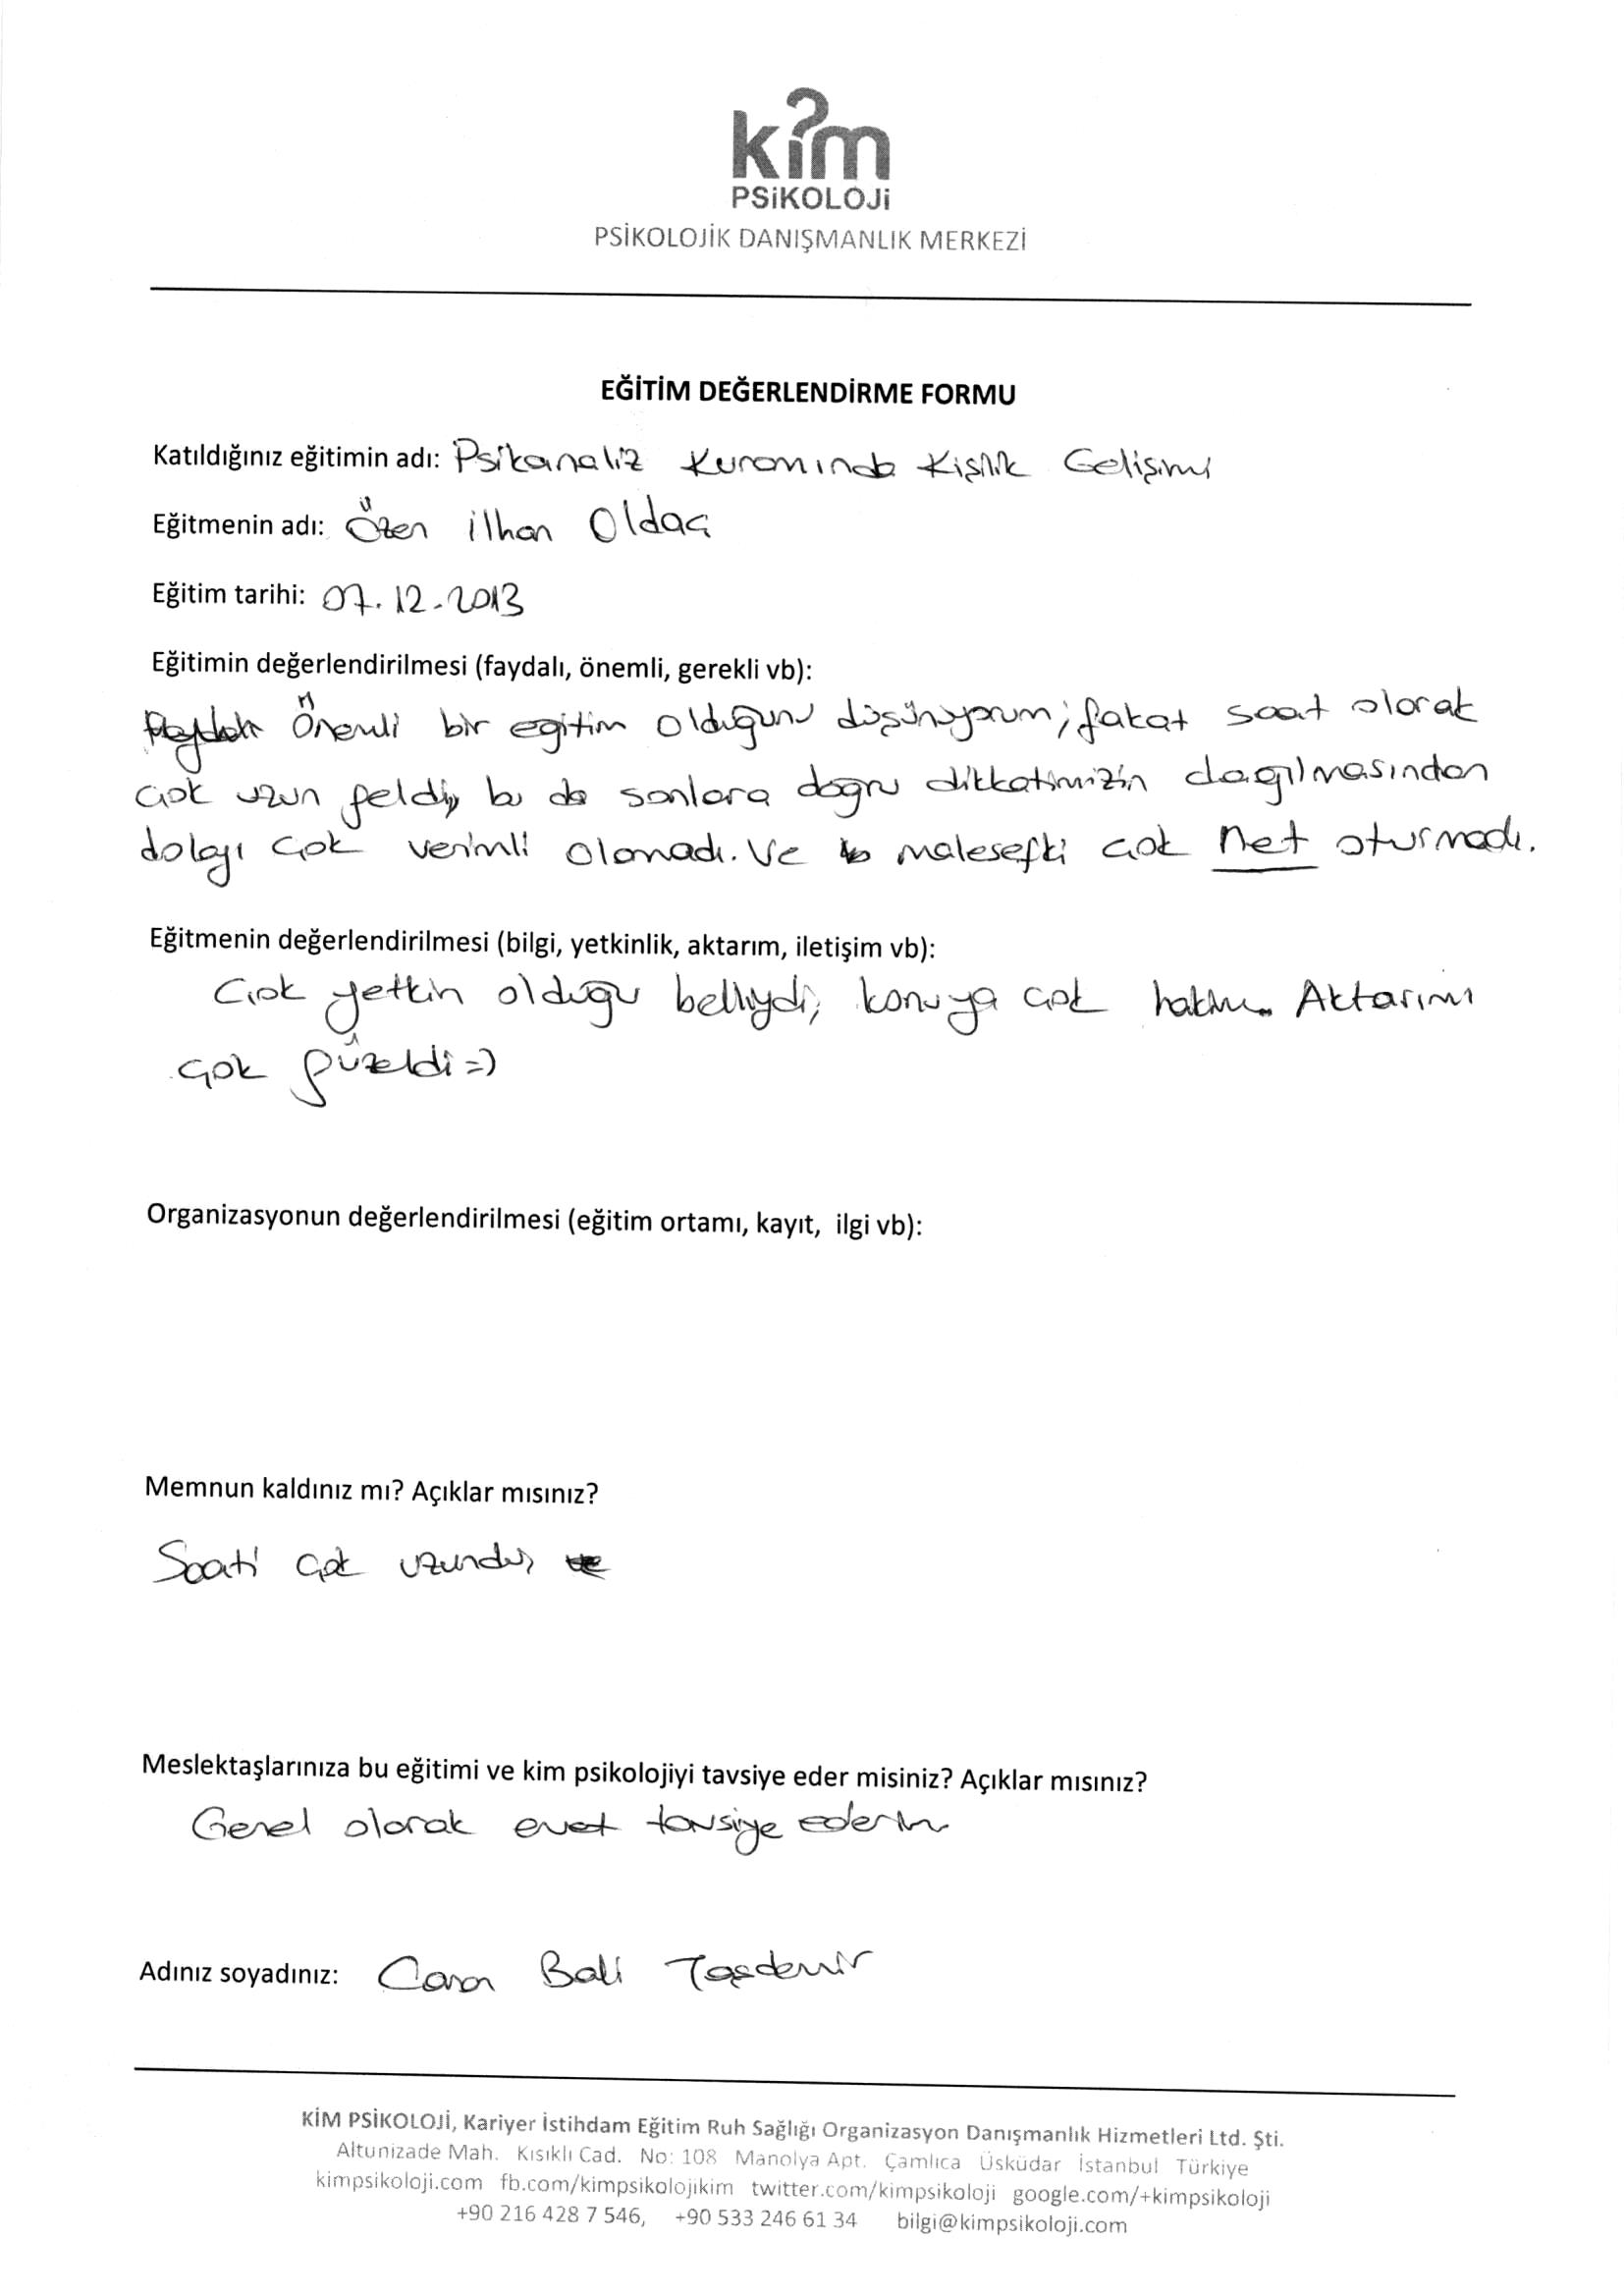 kim
PSiKOLOJi
PSİKOLOJİK DANIŞMANLIK MERKEZİ
EĞİTİM DEĞERLENDİRME FORMU
Katıldığınız eğitimin adı: Psikanaliz Kuramında Kişilik Gelişimi
Eğitmenin adı: Özen ilhan Oldaç
Eğitim tarihi: 07.12.2013
Eğitimin değerlendirilmesi (faydalı, önemli, gerekli vb):
Önemli bir egitim olduğunu düşünüyorum; fakat saat olarak
çok uzun geldi, bu da sonlara doğru dikkatimizin dagılmasından
dolayı çok verimli olamadı. Ve malesefki çok net oturmadı.
Eğitmenin değerlendirilmesi (bilgi, yetkinlik, aktarım, iletişim vb):
Çok yetkin olduğu belliydi, konuya çok hakim. Aktarımı
çok güzeldi =)
Organizasyonun değerlendirilmesi (eğitim ortamı, kayıt, ilgi vb):
Memnun kaldınız mı? Açıklar mısınız?
Saati çok uzundu,
Meslektaşlarınıza bu eğitimi ve kim psikolojiyi tavsiye eder misiniz? Açıklar mısınız?
Genel olarak evet tavsiye ederim
Adınız soyadınız: Bali Taşdemir
KİM PSİKOLOJİ, Kariyer İstihdam Eğitim Ruh Sağlığı Organizasyon Danışmanlık Hizmetleri Ltd. Şti.
Altunizade Mah. Kısıklı Cad. No: 108 Manolya Apt. Çamlıca Üsküdar İstanbul Türkiye
kimpsikoloji.com fb.com/kimpsikolojikim twitter.com/kimpsikoloji google.com/+kimpsikoloji
+90 216 428 7 546, +90 533 246 61 34 bilgi@kimpsikoloji.com